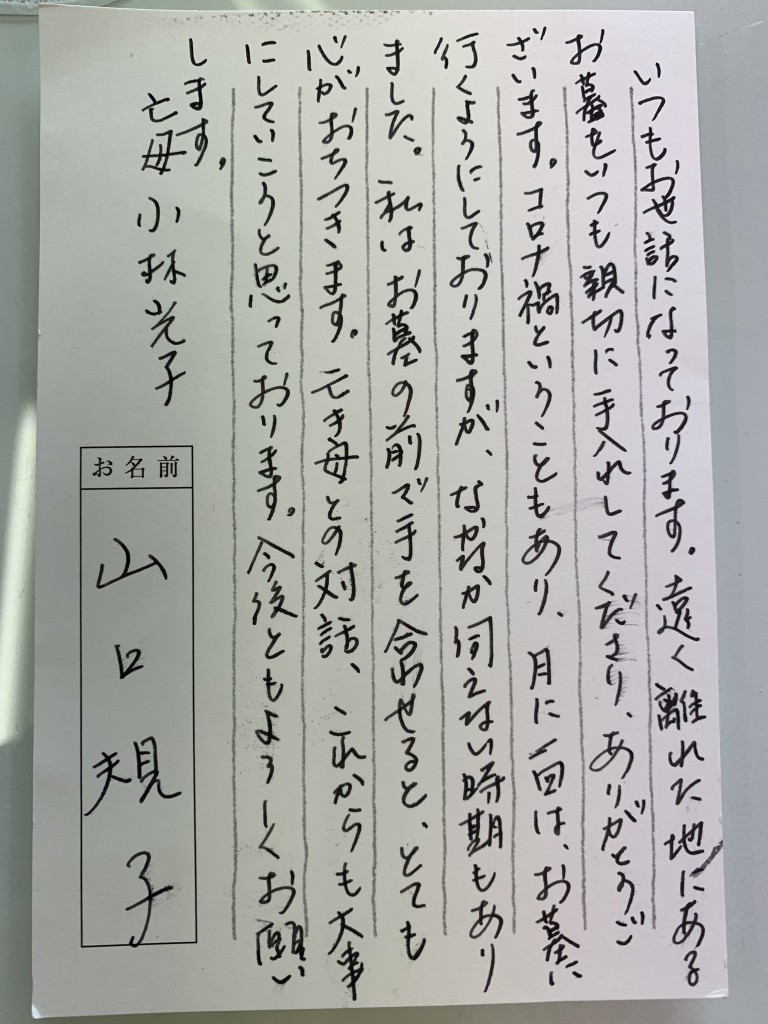 いつもお世話になっております。遠く離れた地にある
お墓をいつも親切に手入れしてくださり、ありがとうご
ざいます。コロナ禍ということもあり、月に一回は、お墓に
行くようにしておりますが、なかなか伺えない時期もあり
ました。私はお墓の前で手を合わせると、とても
心がおちつきます。亡き母との対話、これからも大事
にしていこうと思っております。今後ともよろしくお願い
します。
亡母小林光子
お名前
山口規子